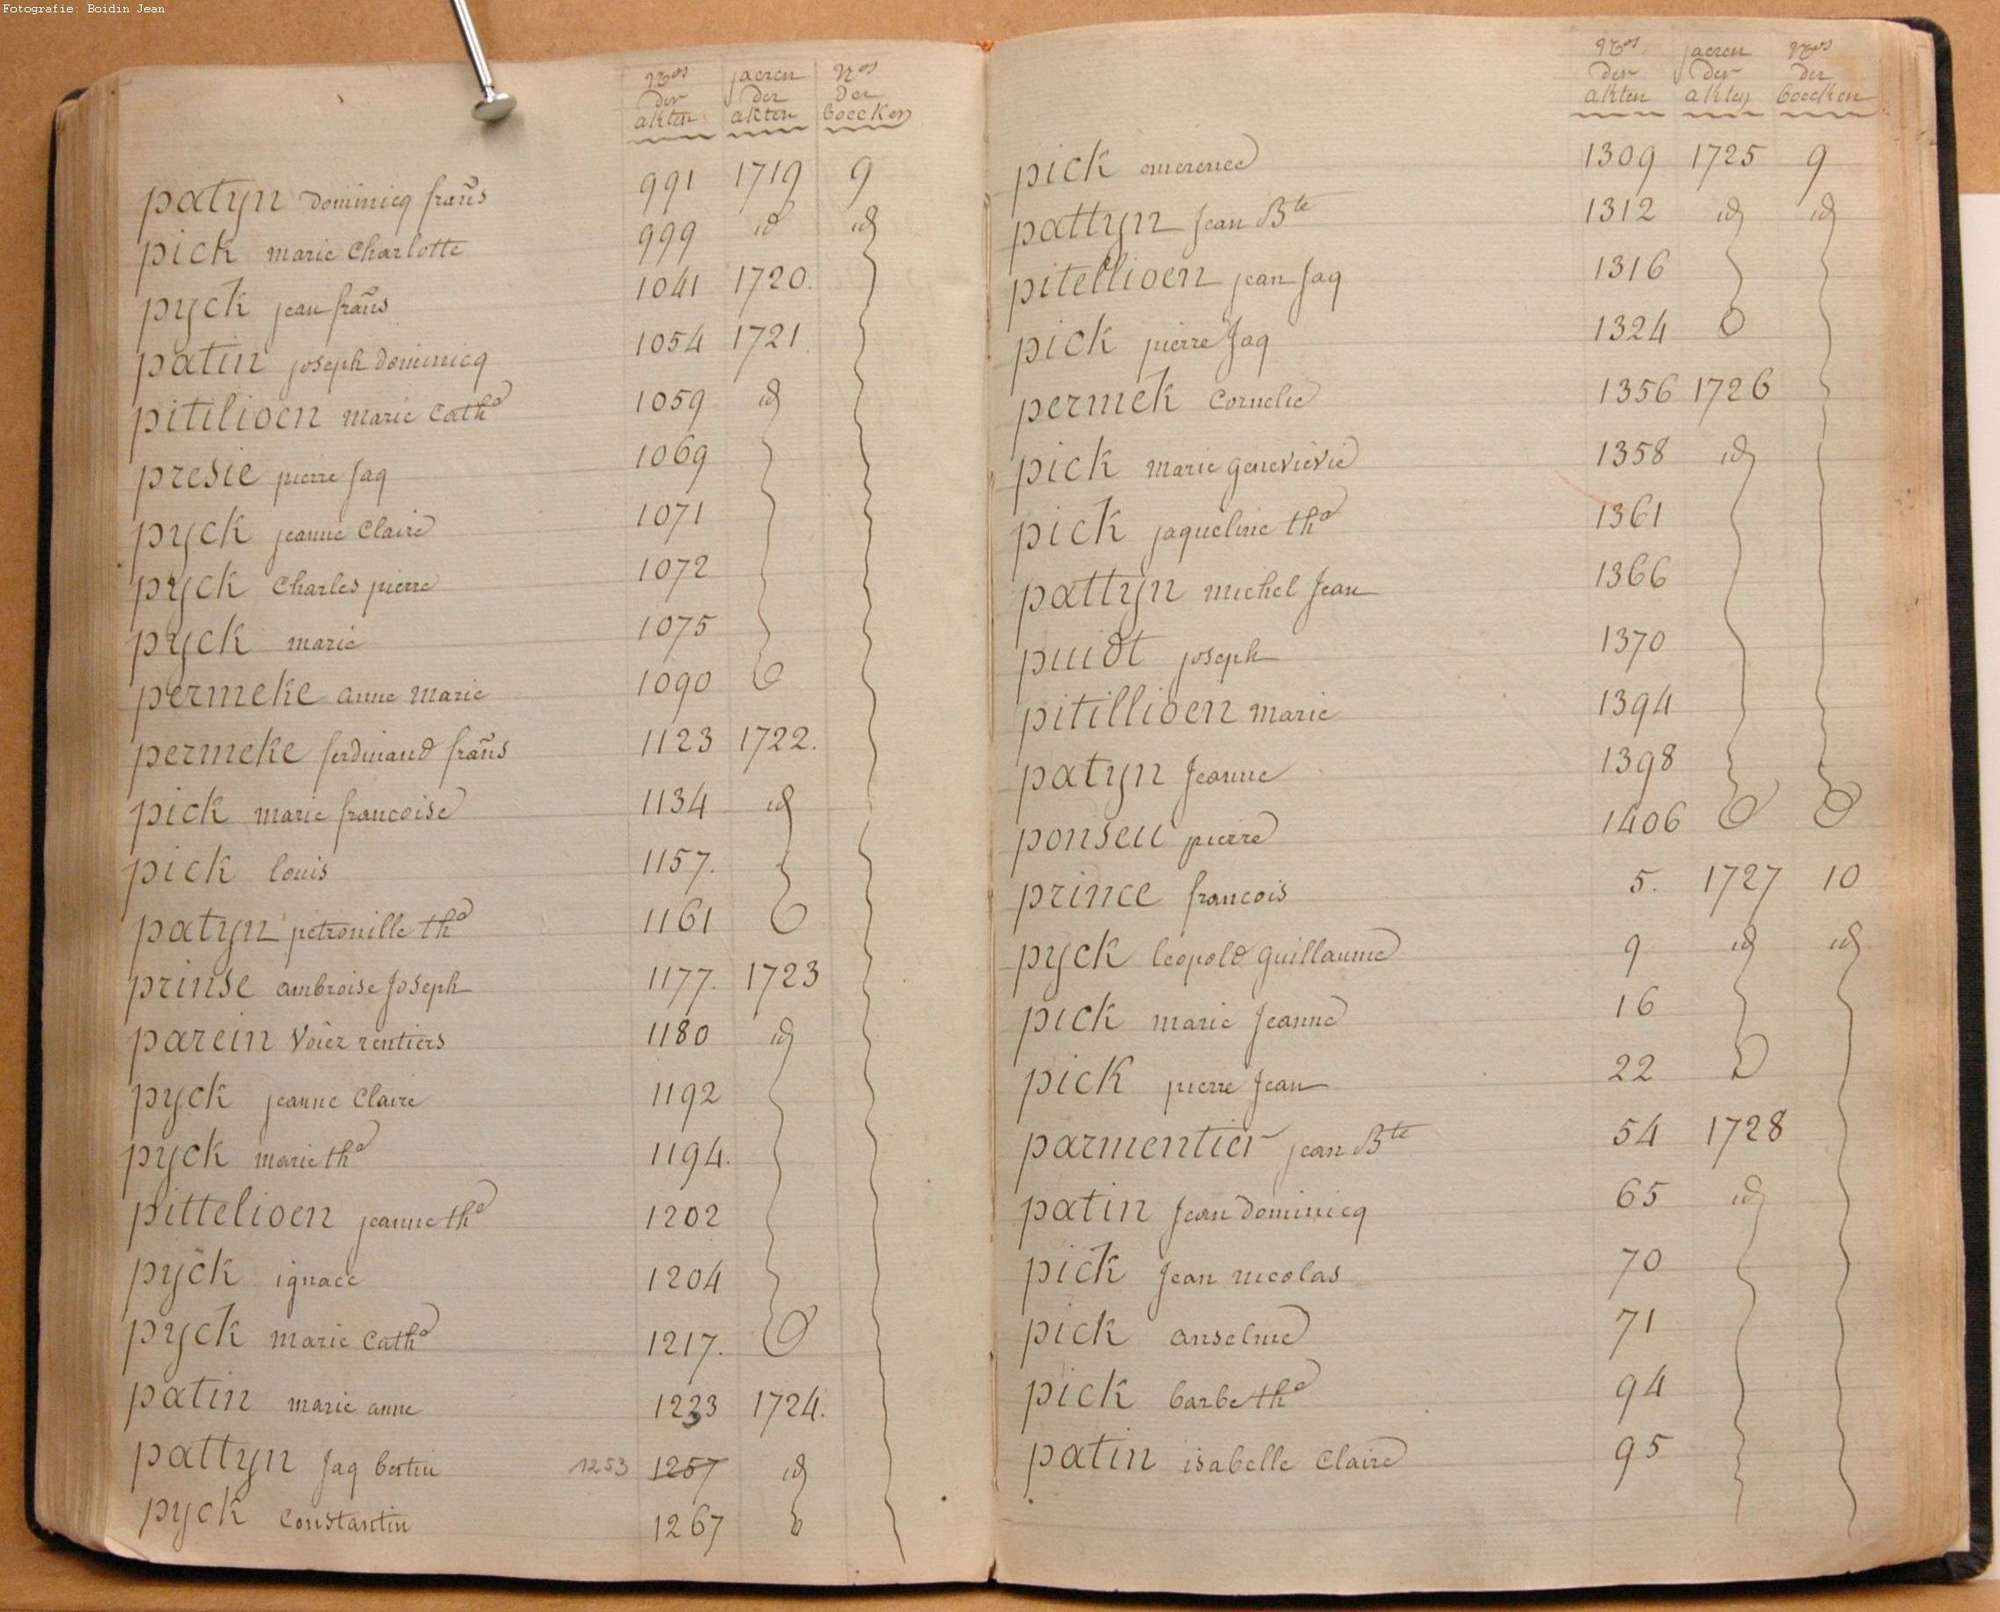 Fotografie: Boidin Jean
Nos jaeren Nos
der der der
akten akten boecken
patyn Dominicq frans 991 1719 9
pick marie Charlotte 999 id id
pyck jean frans 1041 1720.
patin joseph Dominicq 1054 1721
pitilioen marie Catha 1059 id
presie pierre Jaq 1069
pyck jeanne Claire 1071
pyck Charles pierre 1072
pyck marie 1075
permeke anne marie 1090
permeke ferdinand frans 1123 1722.
pick marie francoise 1134 id
pick louis 1157.
patyn petronille tha 1161
prinse ambroise Joseph 1177. 1723
parein Voiez rentiers 1180 id
pyck jeanne Claire 1192
pyck marie tha 1194.
pittelioen jeanne tha 1202
pyck ignace 1204
pyck marie Catha 1217.
patin marie anne 1233 1724.
pattyn Jaq bertin 1253 1257 id
pyck Constantin 1267
Nos jaeren Nos
der der der
akten akten boecken
pick omerence 1309 1725 9
pattyn Jean Bte 1312 id id
pitellioen jean Jaq 1316
pick pierre Jaq 1324
permek Cornelie 1356 1726
pick marie genevievie 1358 id
pick jaqueline tha 1361
pattyn michel Jean 1366
puidt joseph 1370
pitillioen marie 1394
patyn Jeanne 1398
ponseu pierre 1406
prince francois 5. 1727 10
pyck leopold guillaume 9 id id
pick marie Jeanne 16
pick pierre Jean 22
parmentier jean Bte 54 1728
patin Jean Dominicq 65 id
pick Jean nicolas 70
pick anselme 71
pick barbe tha 94
patin isabelle Claire 95